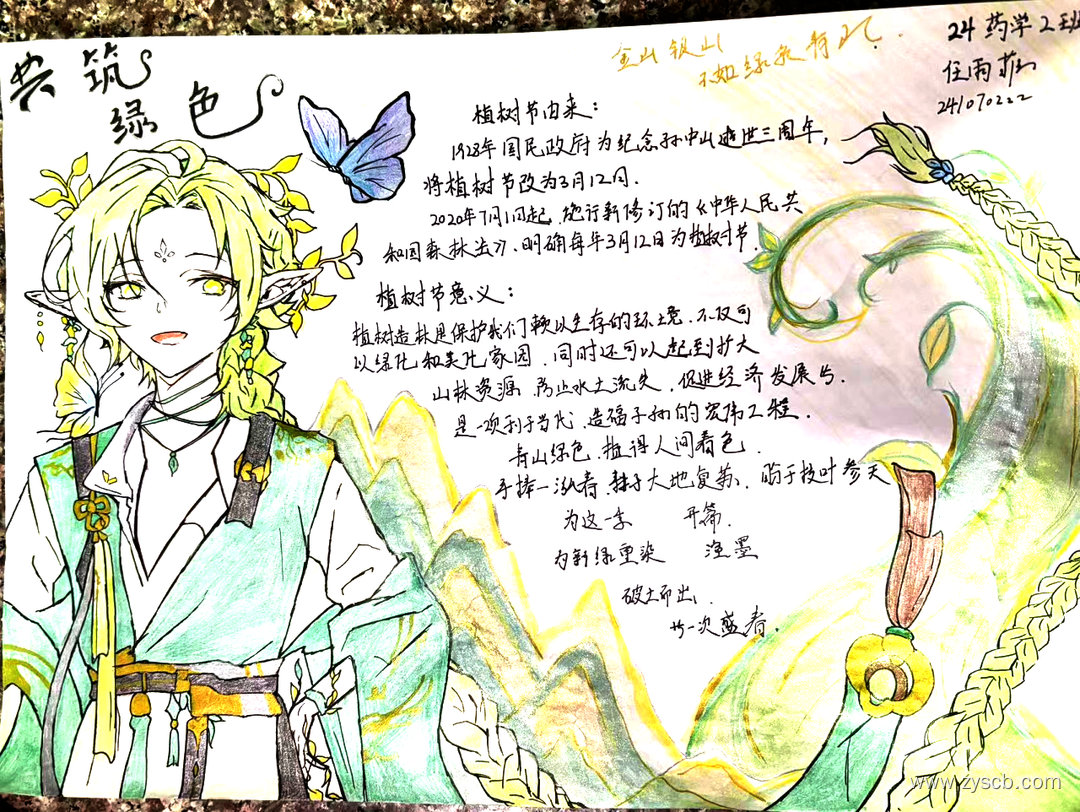 共筑
绿色
金山银山
不如绿水青山.
24药学2班
任雨菲
241070222
植树节由来：
1928年国民政府为纪念孙中山逝世三周年，
将植树节改为3月12日.
2020年7月1日起，施行新修订的《中华人民共
和国森林法》、明确每年3月12日为植树节.
植树节意义：
植树造林是保护我们赖以生存的环境，不仅可
以绿化和美化家园，同时还可以起到扩大
山林资源、防止水土流失，促进经济发展与.
是一项利于当代、造福子孙的宏伟工程.
青山绿色，植得人间春色.
手捧一泓春，耕于大地复苏，盼于枝叶参天
为这一季 开篇.
为新绿重染 渲墨
破土而出.
共一次盛春.
www.zyscb.com